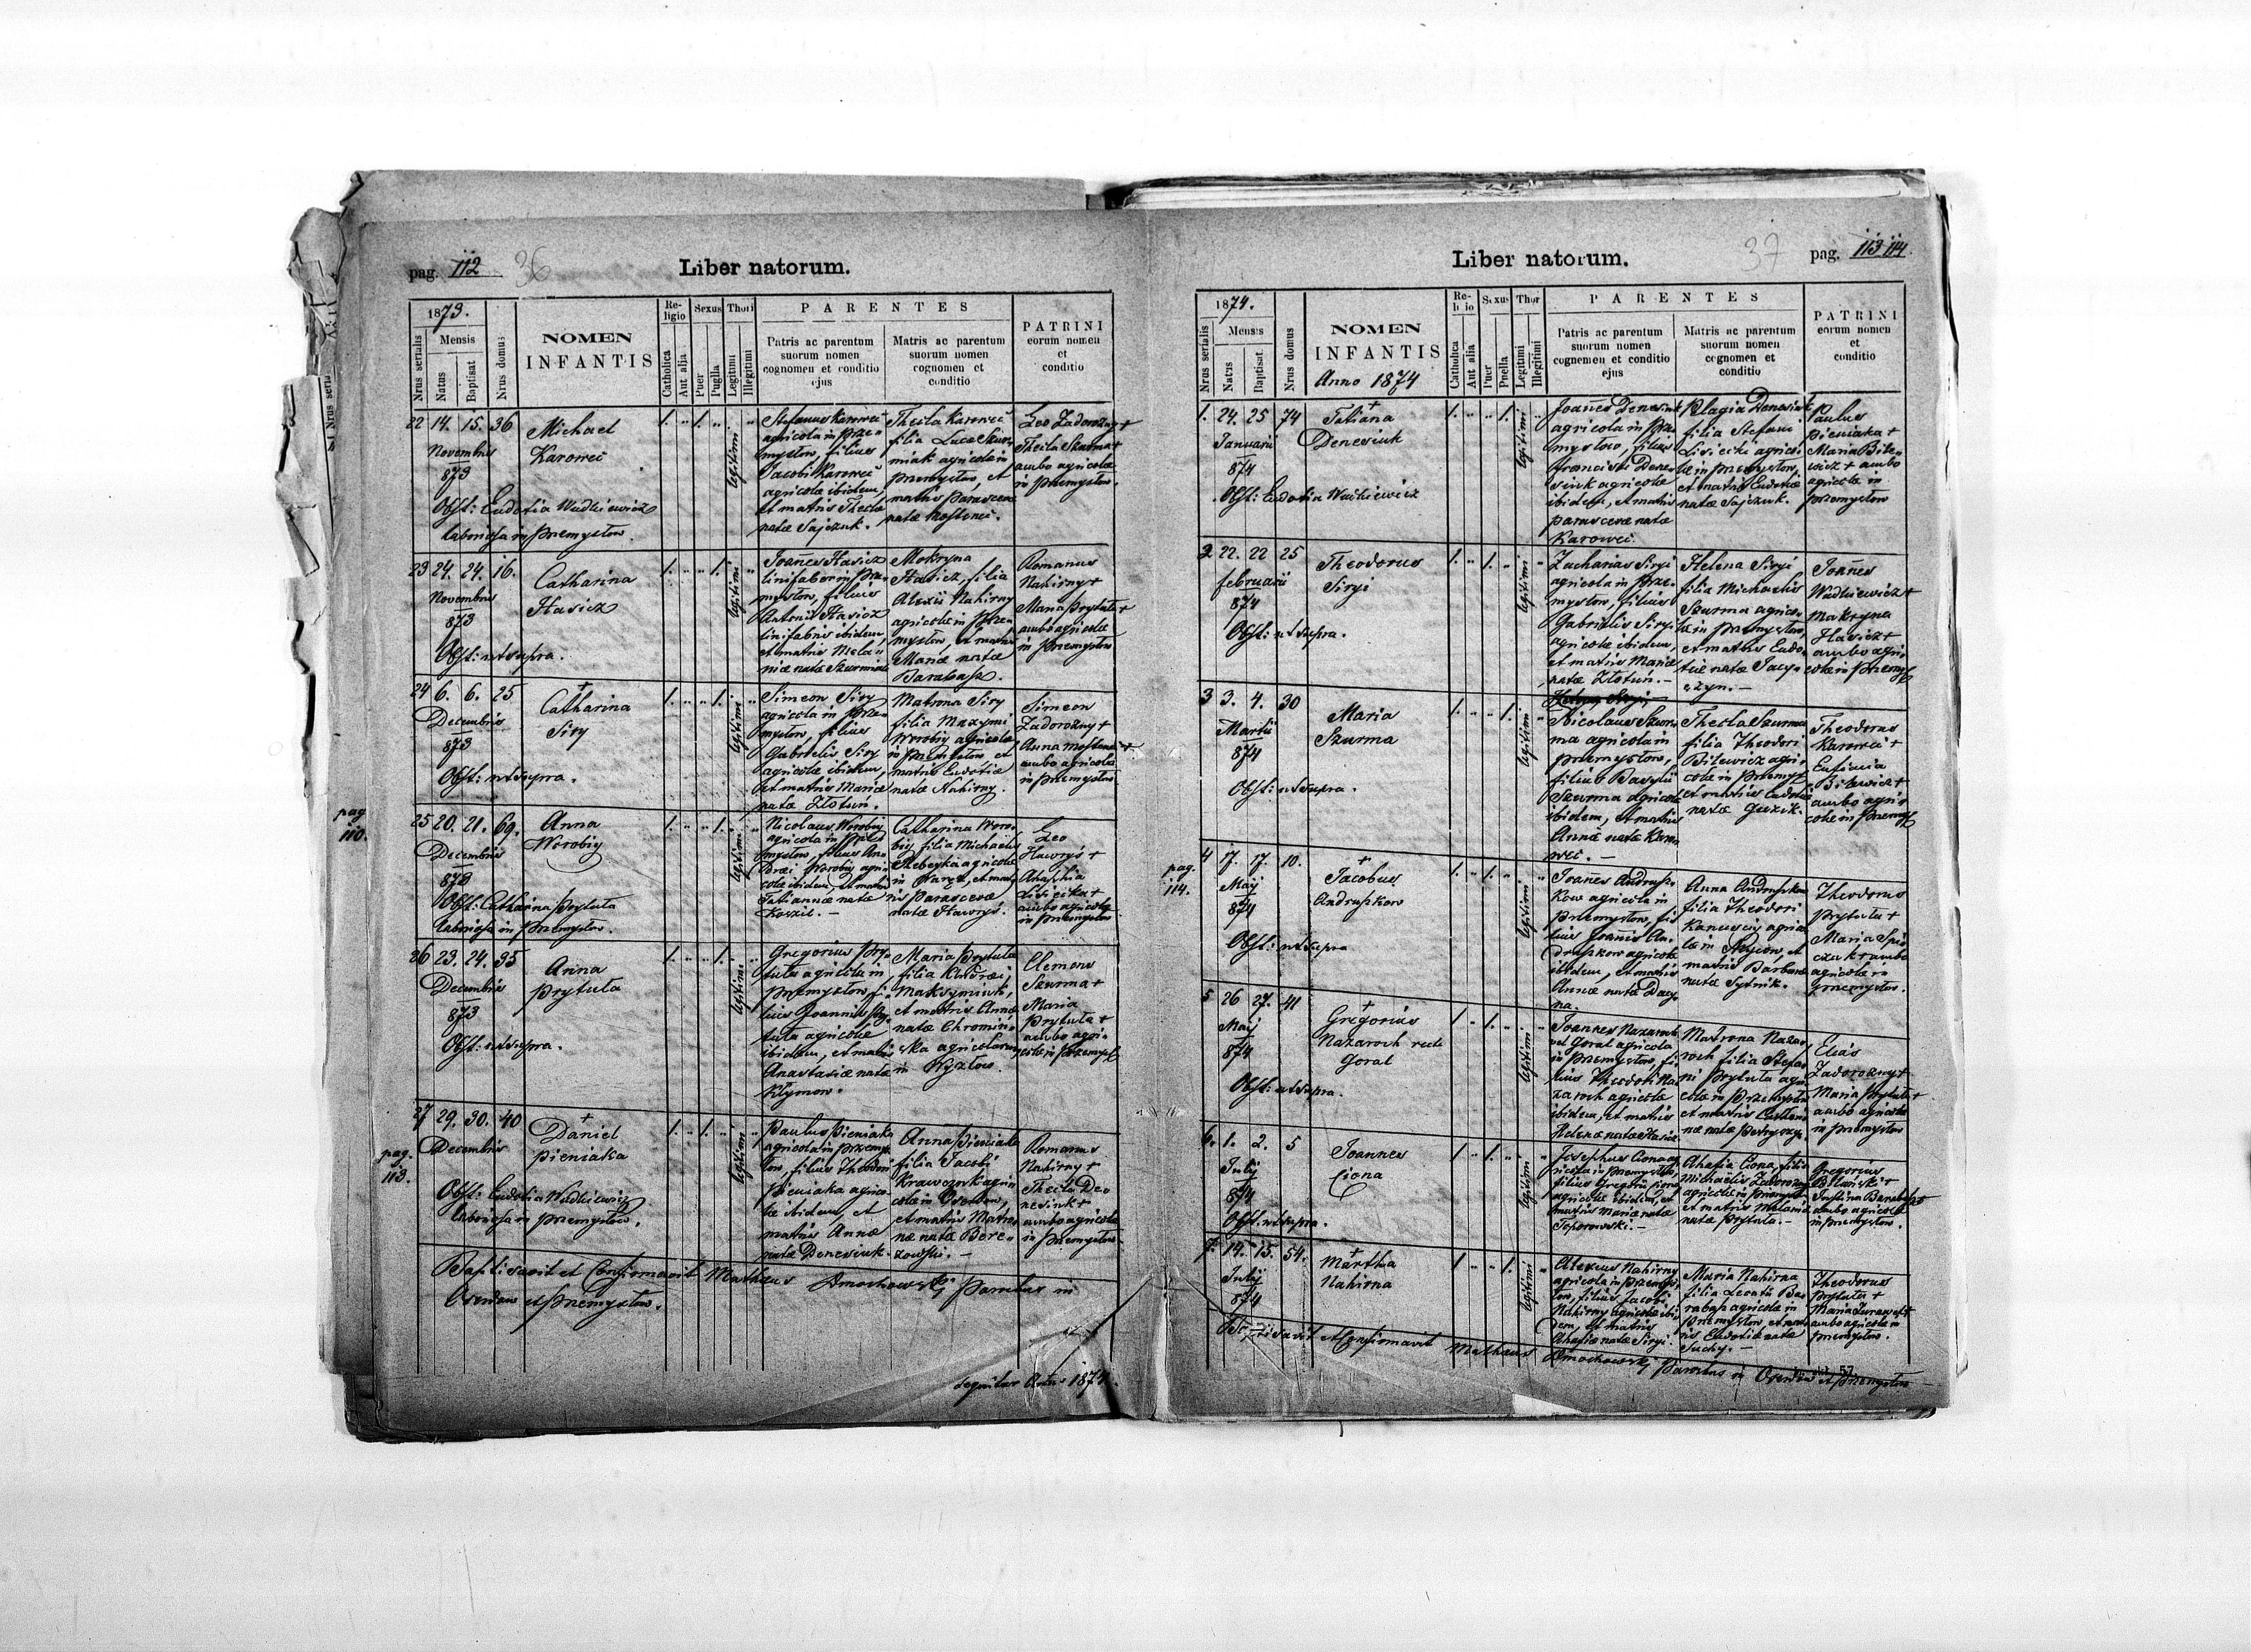 pag. 112 36
Liber natorum.
1873.
Nrus serialis
Mensis
Natus
Baptisat
Nrus domus
NOMEN
INFANTIS
Religio
Catholica
Aut alia
Sexus
Puer
Puella
Thori
Legitimi
Illegitimi
PARENTES
Patris ac parentum
suorum nomen
cognomen et conditio
ejus
Matris ac parentum
suorum nomen
cognomen et
conditio
PATRINI
eorum nomen
et
conditio
22 14. 15. 36
Novembris
873
Michael
Karoweć
Obst: Eudotia Wudkiewicz
laboriosa in Przemysłow.
1. „ 1. „ legitimi „
Stefanus Karoweć
agricola in Prze-
mysłow, filius
Jacobi Karoweć
agricolæ ibidem,
et matris Theclæ
natæ Sajczuk.
Thecla Karoweć
filia Lucæ Szur-
miak agricolæ in
Przemysłow, et
matris Parascevæ
natæ Mostenci.
Leo Zadorozny +
Thecla Szurma +
ambo agricolæ
in Przemysłow.
23 24. 24. 16.
Novembris
873
Catharina
Hasicz
Obst: ut supra.
1. „ „ 1. legitimi „
Joannes Hasicz
linifaber in Prze-
mysłow, filius
Antonii Hasicz
linifabris ibidem
et matris Mela-
niæ natæ Szurmiak
Mokryna
Hasicz, filia
Alexii Nahirny
agricolæ in Prze-
mysłow, et matris
Mariæ natæ
Barabasz.
Romanus
Nahirny +
Maria Prytuła +
ambo agricolæ
in Przemysłow
24 6. 6. 25
Decembris
873
Catharina
Siry
Obst: ut supra.
1. „ „ 1. legitimi „
Simeon Siry
agricola in Prze-
mysłow, filius
Gabrielis Siry
agricolæ ibidem,
et matris Mariæ
natæ Złotun.
Matrona Siry
filia Maxymi
Worobiy agricolæ
in Przemysłow et
matris Eudotiæ
natæ Nahirny.
Simeon
Zadorozny +
Anna
ambo agricolæ
in Przemysłow
pag.
110.
25 20. 21. 69.
Decembris
873
Anna
Worobiy
Obst: Catharina Prytuła
laboriosa in Przemysłow.
1. „ „ 1. legitimi „
Nicolaus Worobiy
agricola in Prze-
mysłow, filius An-
dreæ Worobiy agri-
colæ ibidem, et matris
Tatiannæ natæ
Koszil.
Catharina Woro-
biy filia Michaelis
agricolæ
in et mat-
ris Parascevæ
natæ Hawryś.
Leo
Hawryś +
Ahaphia
Lisiecka +
ambo agricolæ
in Przemysłow
26 23. 24. 35
Decembris
873
Anna
Prytuła
Obst: ut supra.
1. „ „ 1. legitimi „
Gregorius Pry-
tuła agricola in
Przemysłow, fi-
lius Joannis Pry-
tuła agricolæ
ibidem, et matris
Anastasiæ natæ
Klymow.
Maria Prytuła
filia Andreæ
Maksymiuk,
et matris Annæ
natæ Chromiń-
ska agricolarum
in Wyżłow.
Clemens
Szurma +
Maria
Prytuła +
ambo agri-
colæ in Przemysł
27 29. 30. 40
Decembris
pag.
113.
Daniel
Pieniaka
Obst: Eudotia Wudkiewicz
laboriosa in Przemysłow.
1. „ 1. „ legitimi „
Paulus Pieniaka
agricola in Przemys-
łow, filius Theodori
Pieniaka agrico-
læ ibidem, et
matris Annæ
natæ Denesiuk.
Anna Pieniaka
filia Jacobi
Krawczuk agri-
colæ in Oserdow,
et matris Matro-
næ natæ Bere-
zowski.
Romanus
Nahirny +
Thecla De-
nesiuk +
ambo agricolæ
in Przemysłow
Baptisavit et Confirmavit Mathæus Dmochowski Parochus in
Oserdow et Przemysłow.
Sequitur Annus 1874.
Liber natorum.
37 pag. 113 114
1874.
Nrus serialis
Mensis
Natus
Baptisat.
Nrus domus
NOMEN
INFANTIS
Anno 1874
Catholica
Aut alia
Sexus
Puer
Puella
Thor
Legitimi
Illegitimi
PARENTES
Patris ac parentum
suorum nomen
cognomen et conditio
ejus
Matris ac parentum
suorum nomen
cognomen et
conditio
PATRINI
eorum nomen
et
conditio
1. 24. 25 74
Januarii
874
Tatiana
Denesiuk
Obst: Eudotia Wudkiewicz
1. „ „ 1. legitimi „
Joannes Denesiuk
agricola in Prze-
mysłow, filius
Francisci Dene-
siuk agricolæ
ibidem, et matris
Parascevæ natæ
Karoweć.
Pelagia Denesiuk
filia Stefani
Lisiecki agrico-
læ in Przemysłow,
et matris Eudotiæ
natæ Sajczuk.
Paulus
Pieniaka +
Maria Bile-
wicz + ambo
agricolæ in
Przemysłow
2 22. 22 25
Februarii
874
Theodorus
Siryi
Obst: ut supra.
1. „ 1. „ legitimi „
Zacharias Siryi
agricola in Prze-
mysłow, filius
Gabrielis Siryi
agricolæ ibidem,
et matris Mariæ
natæ Złotun.
Helena Siryi
filia Michaelis
Szurma agrico-
læ in Przemysłow,
et matris Eudo-
tiæ natæ
Joannes
Wudkiewicz +
Makryna
Hasicz +
ambo agri-
colæ in Przemysł
3 3. 4. 30
Martii
874
Maria
Szurma
Obst: ut supra.
1. „ „ 1. legitimi „
Nicolaus Szur-
ma agricola in
Przemysłow,
filius Basylii
Szurma agricolæ
ibidem, et matris
Annæ natæ Karo-
weć.
Thecla Szurma
filia Theodori
Bilewicz agri-
colæ in Przemysł
et matris Eudotiæ
natæ Guzik.
Theodorus
Karoweć +
Eufimia
Bilewicz +
ambo agri-
colæ in Przemysł
pag.
114.
4 17. 17. 10.
Maij
874
Jacobus
Andruszkow
Obst: ut supra
1. „ 1. „ legitimi „
Joannes Andrusz-
kow agricola in
Przemysłow, fi-
lius Joannis An-
druszkow agricolæ
ibidem, et matris
Annæ natæ Dacy-
na.
Anna Andruszkow
filia Theodori
agrico-
læ in et
matris Barbaræ
natæ Sytnik.
Theodorus
Prytuła +
Maria
ambo
agricolæ in
Przemysłow.
5 26 27. 41
Maij
874
Gregorius
Nazaroch recte
Goral
Obst: ut supra.
1 „ 1. „ legitimi „
Joannes Nazaroch
vel Goral agricola
in Przemysłow, fi-
lius Theodori Na-
zaroch agricolæ
ibidem, et matris
Helenæ natæ Hasicz
Matrona Naza-
roch filia Stefa-
ni Prytuła agri-
colæ in Przemysłow
et matris Cathari-
næ natæ
Elias
Zadorozny +
Maria Prytuła +
ambo agricolæ
in Przemysłow
6. 1. 2. 5
Julij
874
Joannes
Ciona
Obst: ut supra.
1 „ 1. „ legitimi „
Josephus Ciona ag-
ricola in Przemysłow
filius Gregorii Ciona
agricolæ ibidem, et
matris Mariæ natæ
Toporowski.
Ahafia Ciona, filia
Michaëlis Zadorozny
agricolæ in Przemysł
et matris Melaniæ
natæ Prytuła.
Gregorius
Bilański +
Justina Barabasz +
ambo agricolæ
in Przemysłow.
7. 14. 15. 54.
Julij
874
Martha
Nahirna
1 „ „ 1. legitimi „
Alexius Nahirny
agricola in Przemys-
łow, filius Jacobi
Nahirny agricolæ ibi-
dem, et matris
Ahafiæ natæ Siryi.
Maria Nahirna
filia Leontii Ba-
rabasz agricolæ in
Przemysłow, et mat-
ris Eudotiæ natæ
Suchy.
Theodorus
Prytuła +
Maria
ambo agricolæ in
Przemysłow.
Baptisavit et Confirmavit Mathæus Dmochowski Parochus in Oserdow et Przemysłow
57